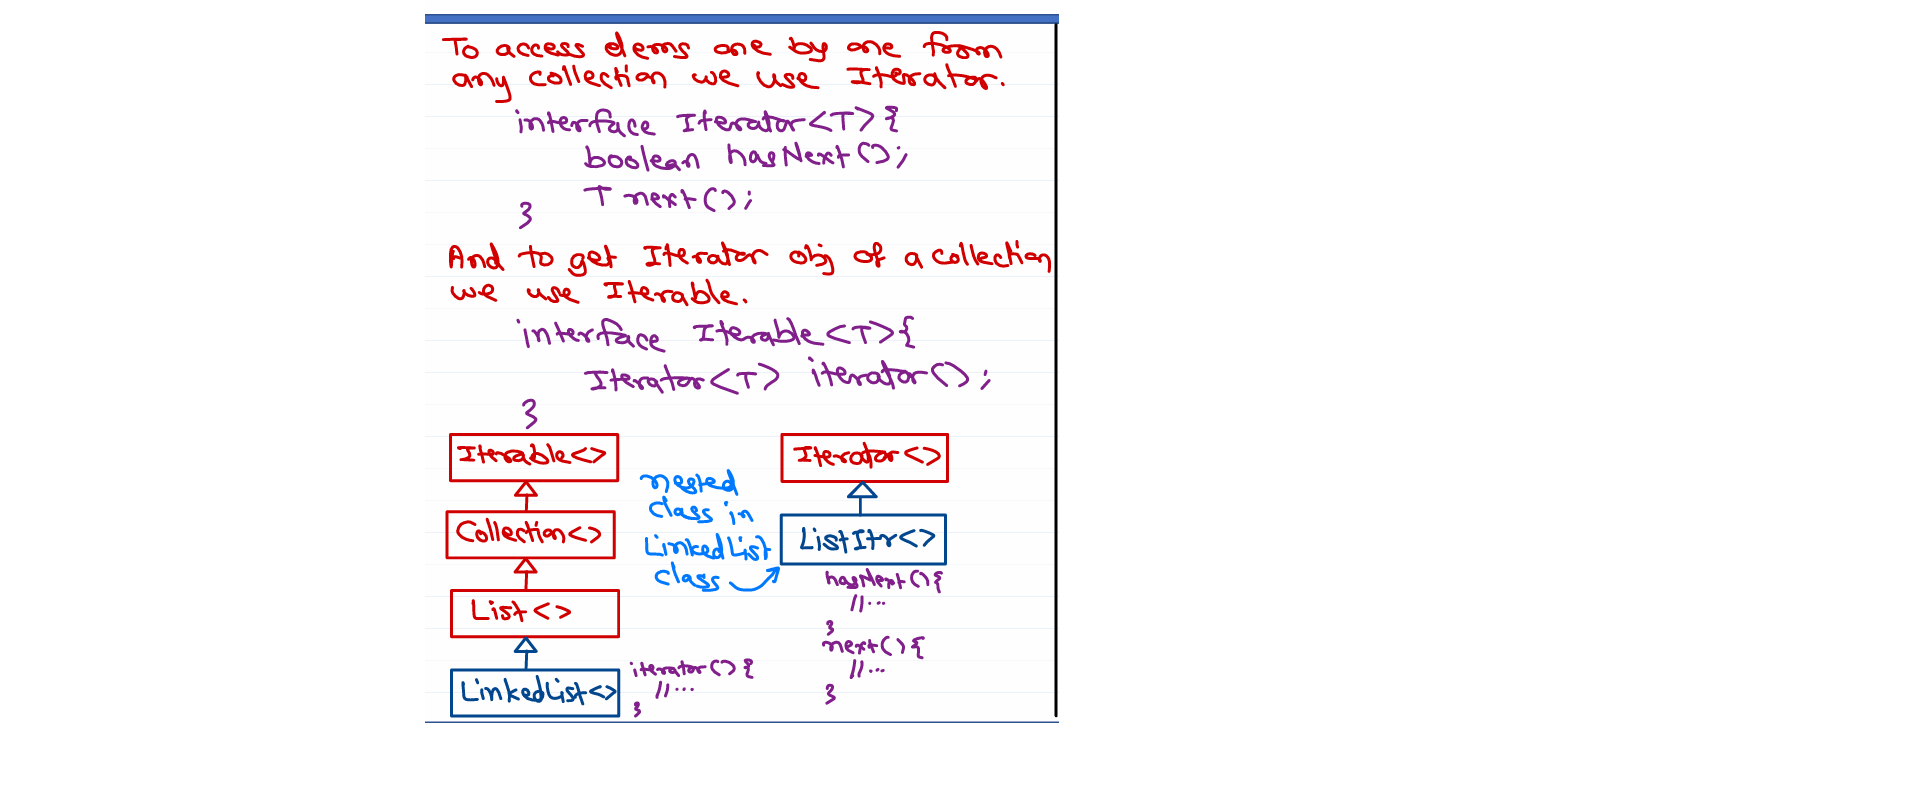 To access elems one by one from
any collection we use Iterator.
interface Iterator<T>{
boolean hasNext();
T next();
}
And to get Iterator obj of a collection
we use Iterable.
interface Iterable<T>{
Iterator<T> iterator();
}
Iterable<>
Collection<>
List<>
LinkedList<>
iterator(){
//...
}
nested
class in
LinkedList
class
Iterator<>
ListItr<>
hasNext(){
//...
}
next(){
//...
}